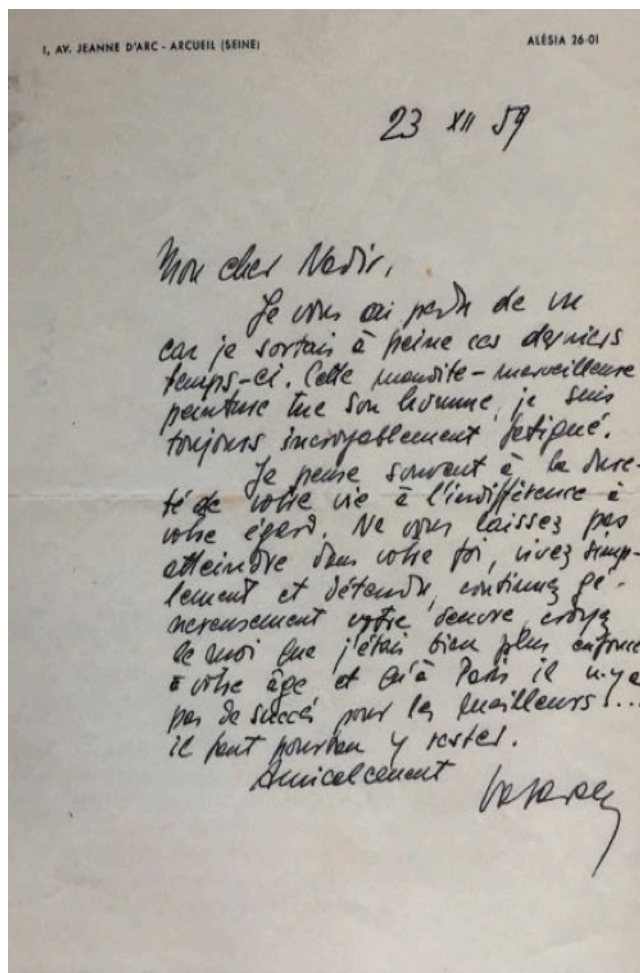 1, AV. JEANNE D'ARC - ARCUEIL (SEINE)
ALÉSIA 26-01
23 XII 59
Mon cher Nadir,
Je vous ai perdu de vue
car je sortais à peine ces derniers
temps-ci. Cette maudite-merveilleuse
peinture tue son homme, je suis
toujours incroyablement fatigué.
Je pense souvent à la dure-
té de votre vie à l'indifférence à
votre égard. Ne vous laissez pas
atteindre dans votre foi, vivez simp-
lement et détendu, continuez gé-
néreusement votre oeuvre, croyez
de moi que j'étais bien plus enfoncé
à votre âge et qu'à Paris il n-y a
pas de succès pour les meilleurs...
il faut pourtan y rester.
Amicalement
Vasarely